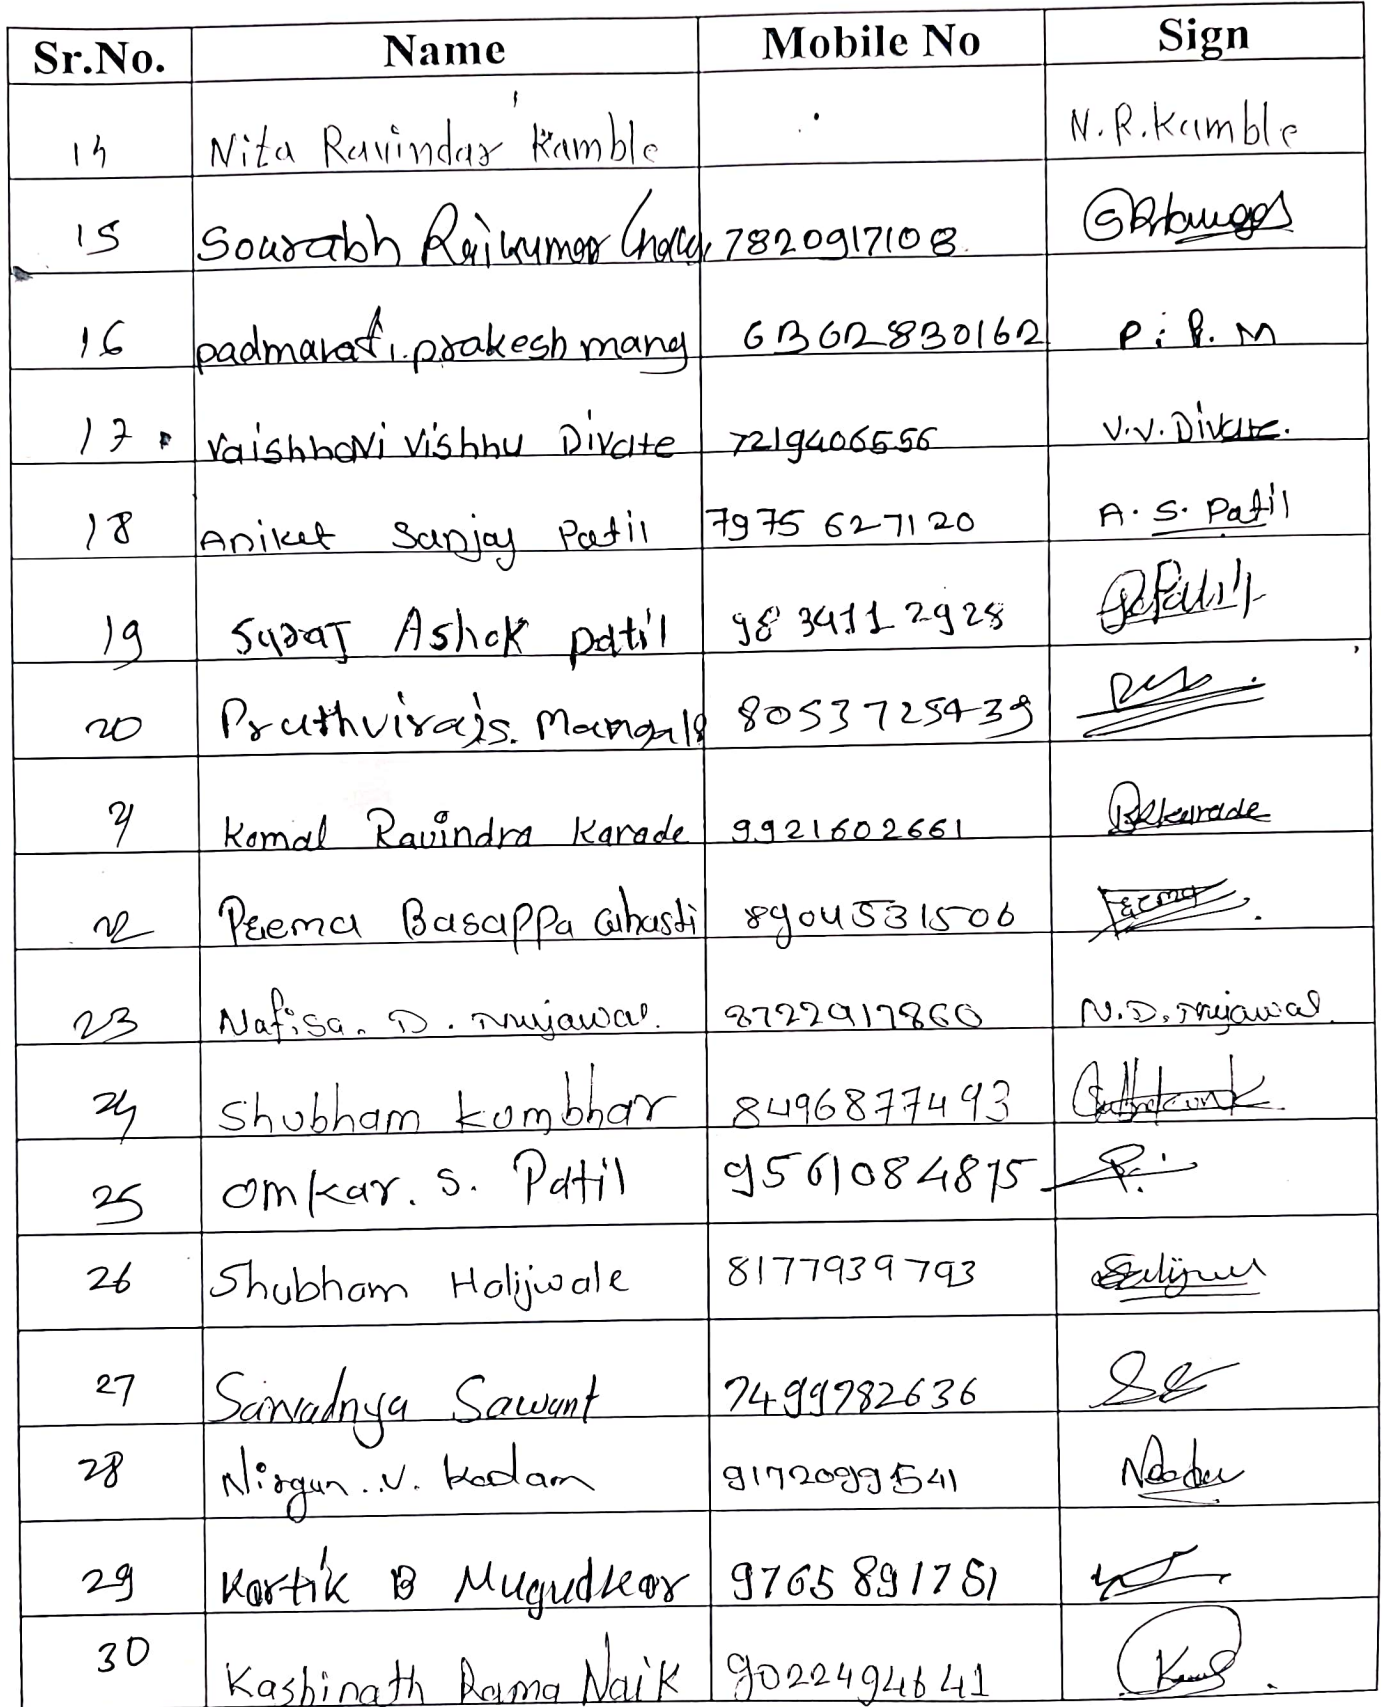 Sr.No. Name Mobile No Sign
14 Nita Ravindar Kamble N.R.Kamble
15 Sourabh Rajkumar 7820917108
16 padmavati.prakesh mang 6362830162 P.P.M
17 Vaishhavi Vishhu Divate 7219406556 V.V.Divate.
18 Aniket Sanjay Patil 7975627120 A.S.Patil
19 Suraj Ashok patil 9834112928
20 Pruthviraj.S. Mangale 8053725439
21 Komal Ravindra Karade 9921602661 Karade
22 Peema Basappa Ghasti 8904531506 Peema
23 Nafisa. D. mujawar. 8722917860 N.D.mujawar.
24 Shubham kumbhar 8496877493
25 Omkar. S. Patil 9561084875
26 Shubham Holijwale 8177939793
27 Sarvadnya Sawant 7499782636
28 Nirgun..V. Kadam 9172099541
29 Kartik B Mugudkar 9765891751
30 Kashinath Rama Naik 9022494641